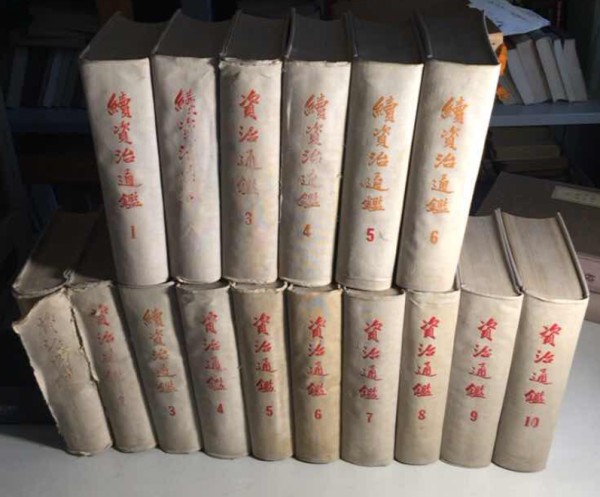 續資治通鑑 1
續
資治通鑑 3
續資治通鑑 4
續資治通鑑 5
續資治通鑑 6
資治
續資治通鑑 3
資治通鑑 4
資治通鑑 5
資治通鑑 6
資治通鑑 7
資治通鑑 8
資治通鑑 9
資治通鑑 10